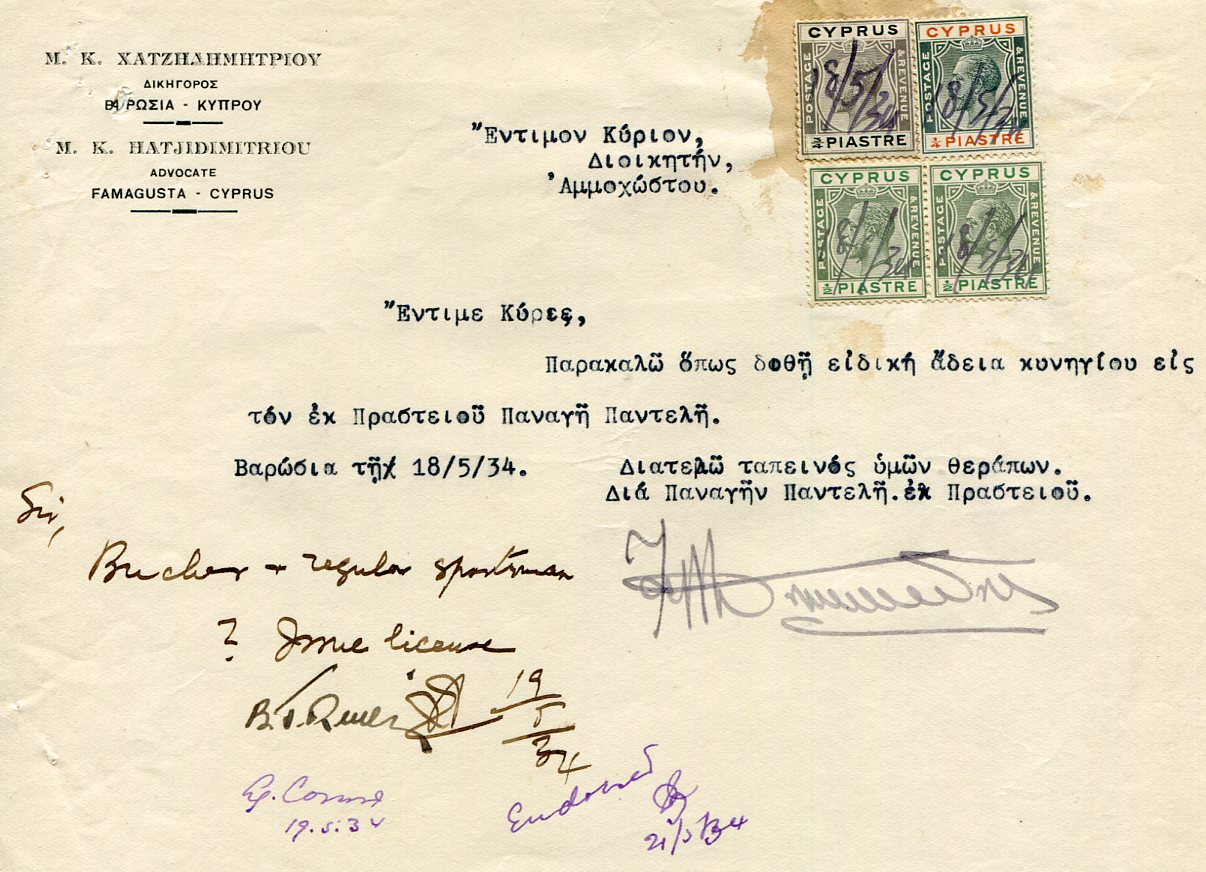 Μ. Κ. ΧΑΤΖΗΔΗΜΗΤΡΙΟΥ
ΔΙΚΗΓΟΡΟΣ
ΒΑΡΩΣΙΑ - ΚΥΠΡΟΥ
M. K. HATJIDIMITRIOU
ADVOCATE
FAMAGUSTA - CYPRUS
CYPRUS
POSTAGE & REVENUE
¾ PIASTRE
18/5/34
CYPRUS
POSTAGE & REVENUE
¼ PIASTRE
18/5/34
CYPRUS
POSTAGE & REVENUE
½ PIASTRE
18/5/34
CYPRUS
POSTAGE & REVENUE
½ PIASTRE
18/5/34
Ἔντιμον Κύριον,
Διοικητήν,
Ἀμμοχώστου.
Ἔντιμε Κύριε,
Παρακαλῶ ὅπως δοθῇ εἰδική ἄδεια κυνηγίου εἰς
τόν ἐκ Πραστειοῦ Παναγῆ Παντελῆ.
Βαρώσια τῇ 18/5/34.
Διατελῶ ταπεινός ὑμῶν θεράπων.
Διά Παναγῆν Παντελῆ.ἐκ Πραστειοῦ.
Sir,
regular sportsman
? Issue license
19/5/34
19.5.34
Endorsed
21/5/34